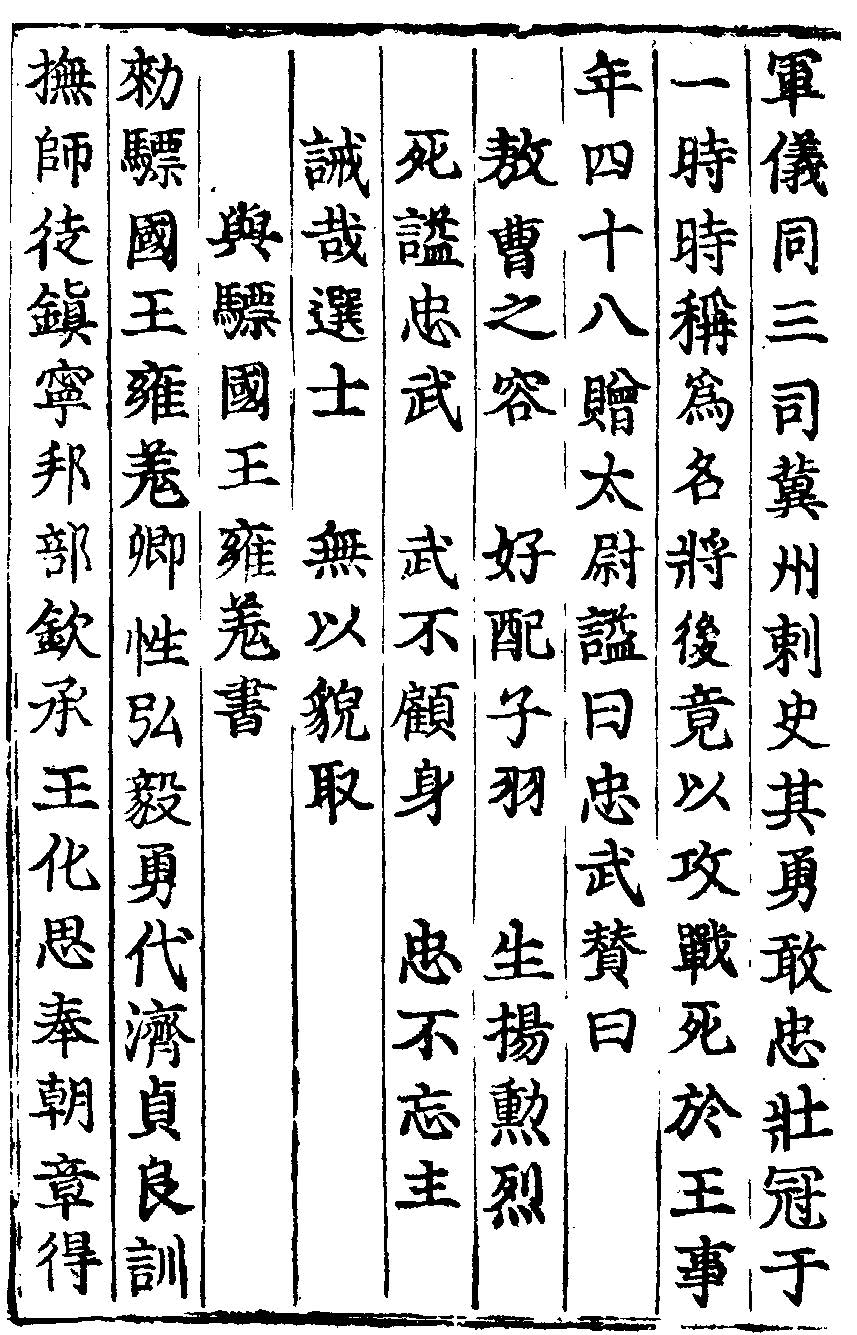 軍儀同三司冀州刺史其勇敢忠壯冠于
一時時稱爲名將後竟以攻戰死於王事
年四十八贈太尉謚曰忠武贊曰
敖曹之容　好配子羽　生揚勲烈
死謚忠武　武不顧身　忠不忘主
誡哉選士　無以貌取
與驃國王雍羗書
勑驃國王雍羗卿性弘毅勇代濟貞良訓
撫師徒鎭寧邦部欽承王化思奉朝章得